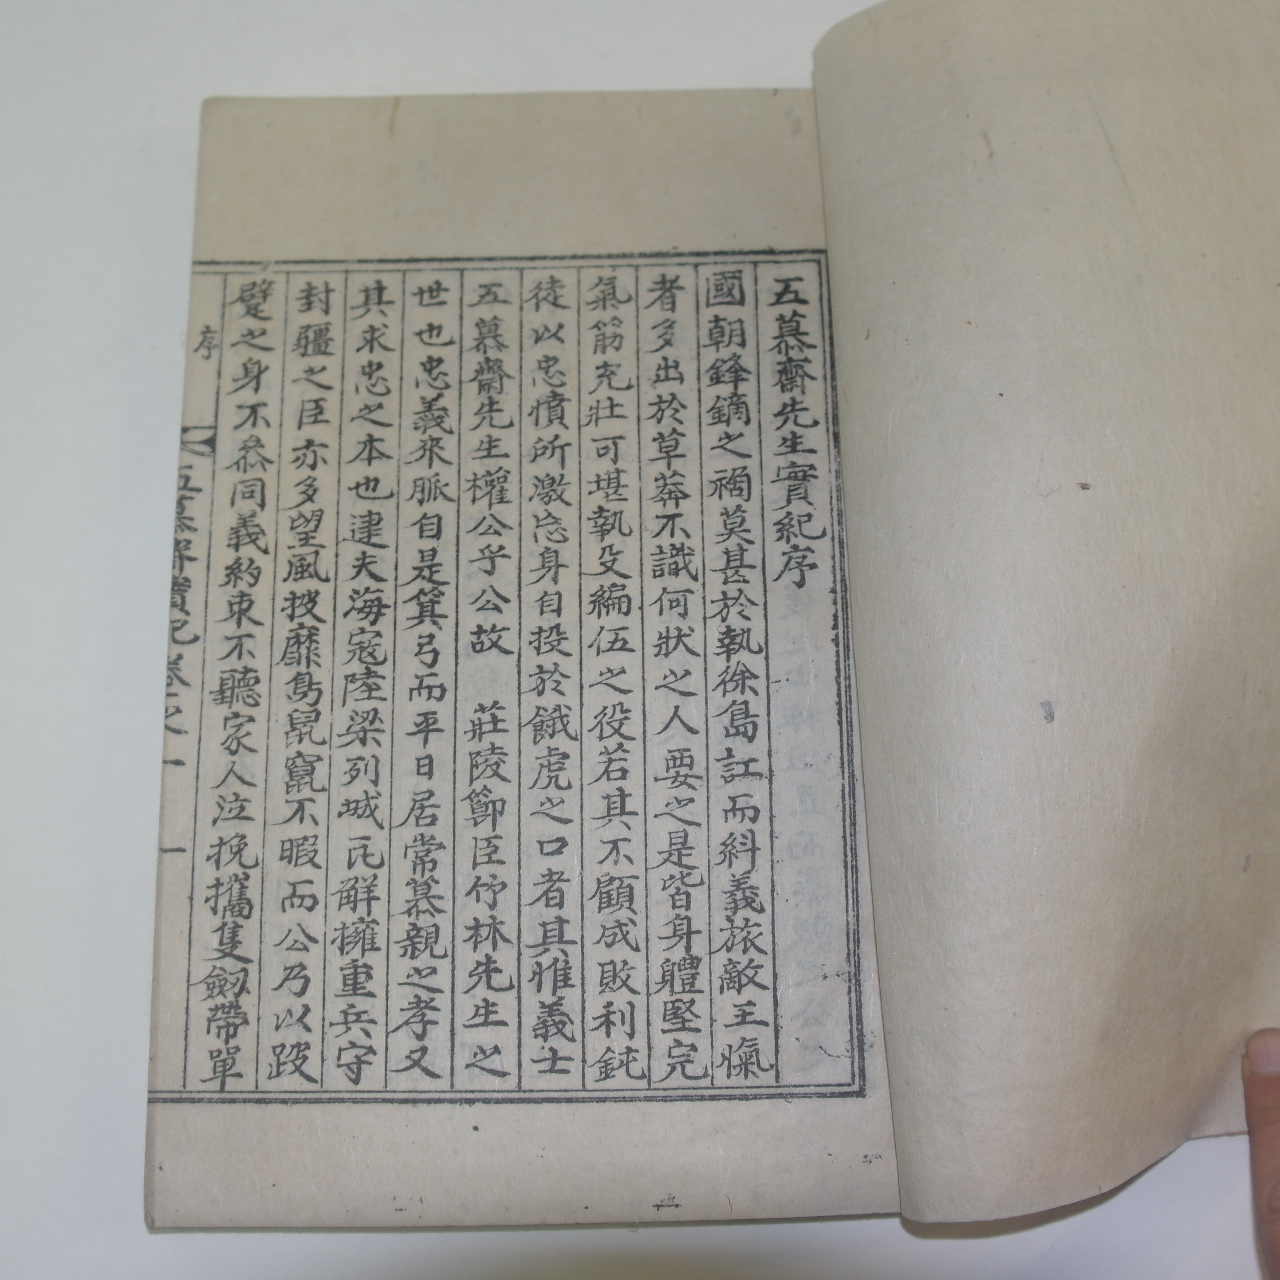 五慕齋先生實紀序
國朝鋒鏑之禍莫甚於執徐島訌而糾義旅敵王愾
者多出於草莽不識何狀之人要之是皆身軆堅完
氣筋充壯可堪執殳編伍之役若其不顧成敗利鈍
徒以忠憤所激忘身自投於餓虎之口者其惟義士
五慕齋先生權公乎公故 莊陵節臣竹林先生之
世也忠義來脈自是箕弓而平日居常慕親之孝又
其求忠之本也逮夫海寇陸梁列城瓦解擁重兵守
封疆之臣亦多望風披靡鳥鼠竄不暇而公乃以跛
躄之身不叅同義約束不聽家人泣挽攜隻劒帶單
序
五慕齋實紀卷之一 一